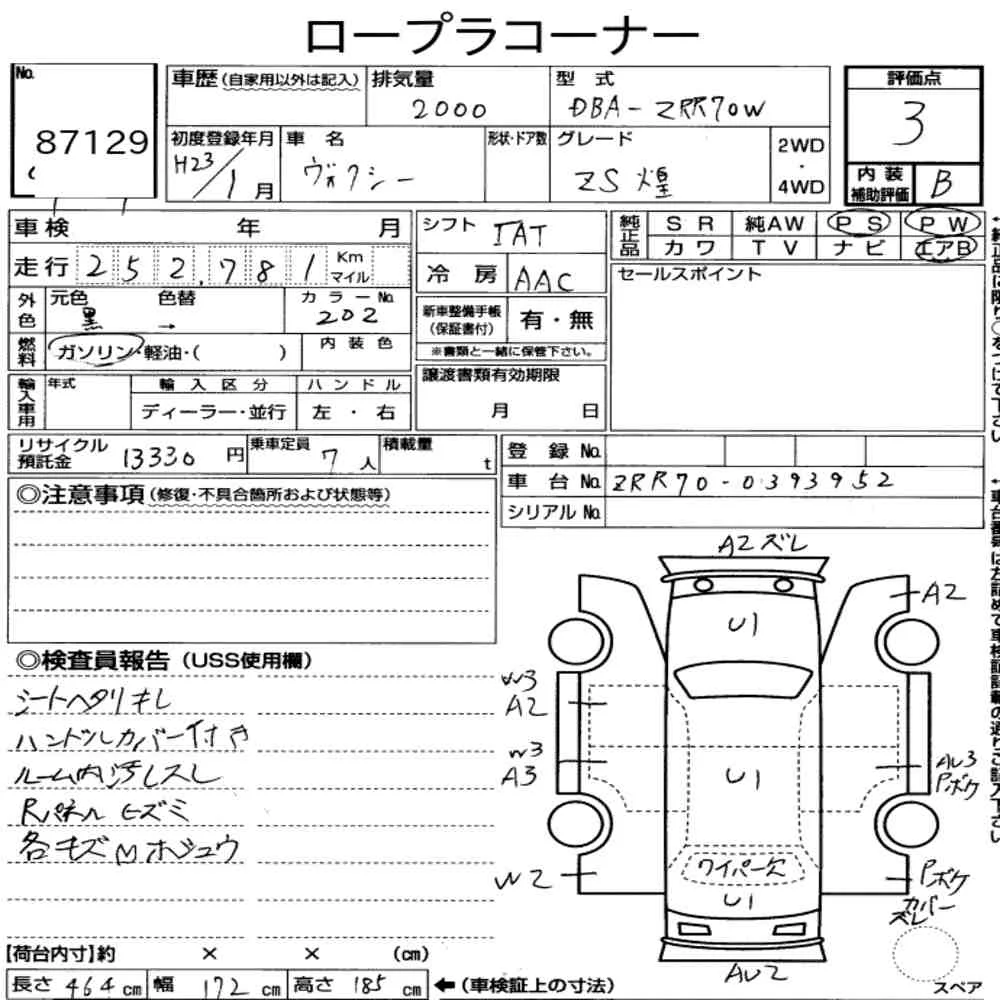 ロープラコーナー
No. 87129
車歴(自家用以外は記入) 排気量 2000 型 式 DBA-ZRR70W
初度登録年月 H23/1月 車 名 ヴォクシー 形状・ドア数 グレード ZS 煌 2WD・4WD
評価点 3
内装補助評価 B
車検 年 月
走行 252,781 Km マイル
外色 元色 黒 色替 → カラーNo. 202
燃料 ガソリン・軽油・( ) 内装色
輸入車用 年式 輸入区分 ハンドル
ディーラー・並行 左・右
シフト IAT
冷房 AAC
新車整備手帳(保証書付) 有・無
※書類と一緒に保管下さい。
譲渡書類有効期限
月 日
純正品 SR 純AW PS PW
カワ TV ナビ エアB
セールスポイント
リサイクル預託金 13330円 乗車定員 7人 積載量 t
登録No.
車台No. ZRR70-0393952
シリアルNo.
◎注意事項(修復・不具合箇所および状態等)
◎検査員報告(USS使用欄)
シートヘタリキレ
ハンドルカバー付き
ルーム内汚レスレ
Rパネル ヒズミ
各キズ凹ホシュウ
A2ズレ
A2
U1
W3
A2
W3
A3
U1
AU3
Pボケ
W2
ワイパー欠
U1
Pボケ
カバーズレ
AU2
スペア
【荷台内寸】約 × × (cm)
長さ 464cm 幅 172cm 高さ 185cm ←(車検証上の寸法)
↑純正品に限り○をつけて下さい
↑車台番号は左詰めで車検証記載の通りご記入下さい